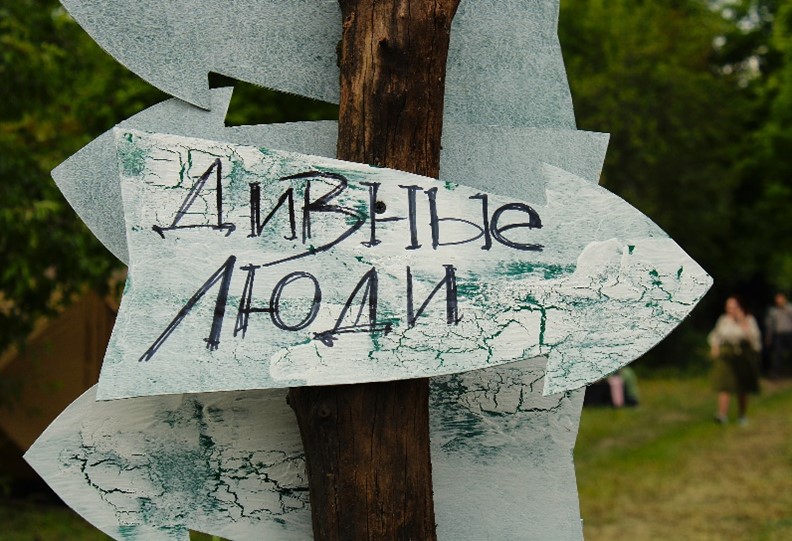 Дивные
Люди